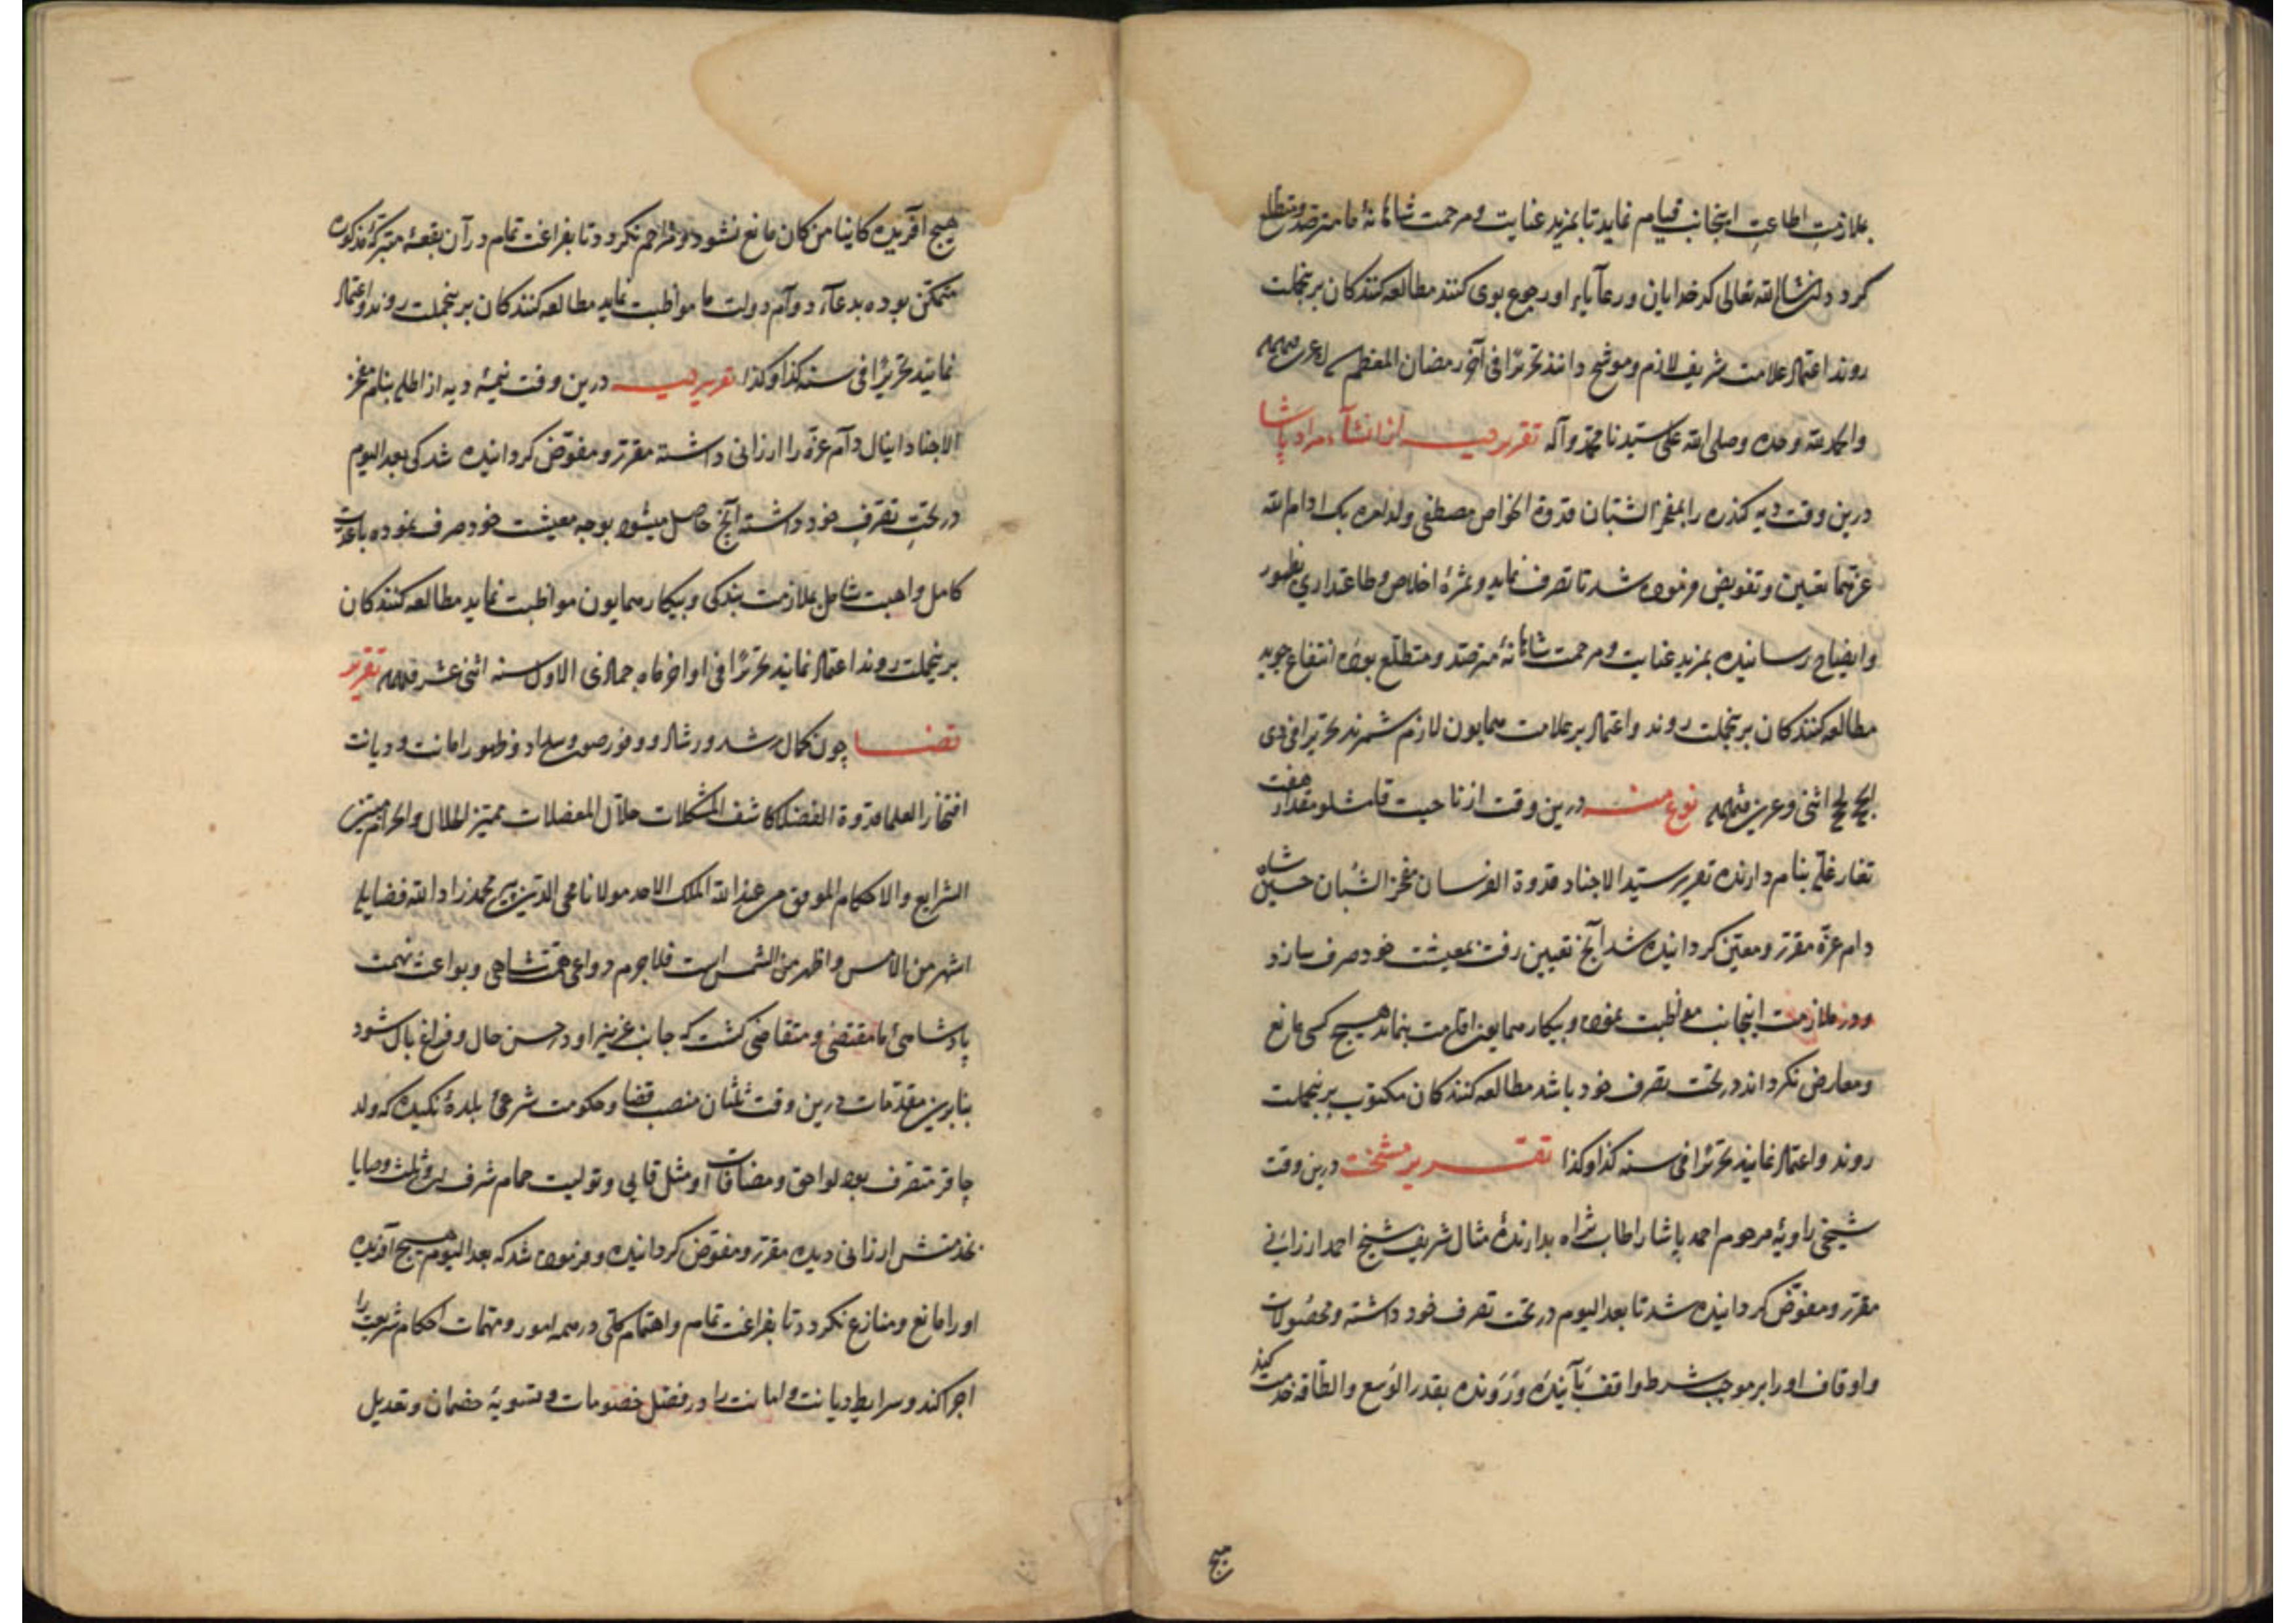 بملازمت اطاعت اینجانب قیام نماید تا بمزید عنایت و مرحمت شاهانهٔ ما مترصد و متطلع
کردد انشاالله تعالی کدخدایان و رعآیاء او رجوع بوی کنند مطالعه کنندکان برینجملت
روند اعتماد علامت شریف لازم و موشح دانند تحریرًا فی آخر رمضان المعظم
والحمدلله وحده وصلی الله علی سیدنا محمد وآله تقریر دیه از انشآء مراد پاشا
درین وقت دیه کذره را بمفخر الشبان قدوة الخواص مصطفی ولد بک ادام الله
عزهما تعیین و تفویض فرموده شد تا تصرف نماید و ثمرهٔ اخلاص و طاعتداری بظهور
وایضاح رسانیده بمزید عنایت و مرحمت شاهانهٔ مترصد و متطلع بوده انتفاع جوید
مطالعه کنندکان برینجملت روند و اعتماد بر علامت همایون لازم شمرند تحریرا فی ذی
الحج اثنی نوع منه درین وقت از ناحیت مقدار هفت
تغار غله بنام دارنده تقریر سید الاجناد قدوة الفرسان مفخر الشبان حسین شاه
دام عزه مقرر و معین کردانیده شد آنچ تعیین رفت بمعیشت خود صرف سازد
و در ملازمت اینجانب مواظبت نموده و بیکار همایون اقامت بنماند هیچ کسی مانع
ومعارض نکرداند در تحت تصرف خود باشد مطالعه کنندکان مکتوب برینجملت
روند و اعتماد نمایند تحریرًا فی سنه کذا وکذا تقریر مشیخت درین وقت
شیخی زاویهٔ مرحوم احمد پاشا را طاب ثراه بدارندهٔ مثال شریف شیخ احمد ارزانی
مقرر و مفوض کردانیده شد تا بعد الیوم در تحت تصرف خود داشته و محصولات
واوقاف او را بر موجب شرط واقف بآینده و رونده بقدر الوسع والطاقه خدمت کند
هیچ
هیچ آفریده کاینا من کان مانع نشود و مزاحم نکردد تا بفراغت تمام در آن بقعهٔ متبرکهٔ مذکوره
متمکن بوده بدعآء دوآم دولت ما مواظبت نماید مطالعه کنندکان برینجملت روند و اعتماد
نمایند تحریرًا فی سنه کذا وکذا تقریر دیه درین وقت نیمهٔ دیه از بنام مفخر
الاجناد اینال دآم عزه را ارزانی داشته مقرر و مفوض کردانیده شد کی بعد الیوم
در تحتِ تصرفِ خود داشته آنچ حاصل میشود بوجه معیشت خود صرف نموده باعدت
کامل و اهبت شامل بملازمت بندکی و بیکار همایون مواظبت نماید مطالعه کنندکان
برینجملت روند اعتماد نمایند تحریرًا فی اواخر ماه جمادی الاول سنه اثنی عشر تقریر
قضا چون کمال رشد و رشاد و وفور صون و سداد و ظهور امانت و دیانت
افتخار العلما قدوة الفضلا کاشف المشکلات حلال المعضلات ممیز الحلال والحرام مبین
الشرایع والاحکام الموفق من عند الله الملک الاحد مولانا محی الدین پیر محمد زاد الله فضایله
اشهر من الامس و اظهر من الشمس است فلاجرم دواعی همت شاهی و بواعث نهمت
پادشاهی ما مقتضی و متقاضی کشت که جانب عزیز او در حسن حال و فراغ بال شود
بنابرین مقدمات درین وقت ثلثان منصب قضا و حکومت شرعی بلدهٔ نکیده که ولد
متصرف بود لواحق و مضافات او مثل و تولیت حمام شرف و ثلث وصایا
بخدمتش ارزانی دیده مقرر و مفوض کردانیده و فرموده شد که بعد الیوم هیچ آفریده
او را مانع و منازع نکردد تا بفراغت تمام و اهتمام کلی در همه امور و مهمات احکام شریعت را
اجرا کند و شرایط دیانت و امانت را در فصل خصومات و تسویهٔ خصمان و تعدیل